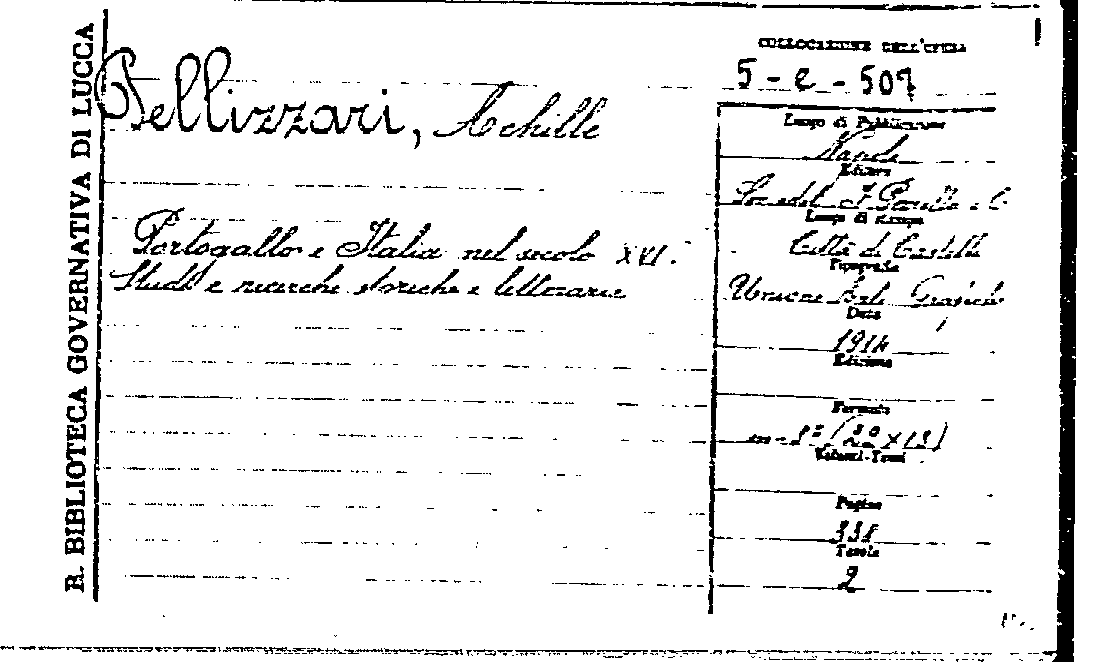 R. BIBLIOTECA GOVERNATIVA DI LUCCA
Pellizzari, Achille
Portogallo e Italia nel secolo XVI.
Studi e ricerche storiche e letterarie
COLLOCAZIONE DELL'OPERA
5-e-507
Luogo di Pubblicazione
Napoli
Editore
Soc. edit. F. Perrella e C.
Luogo di Stampa
Città di Castello
Tipografia
Unione Arti Grafiche
Data
1914
Edizione
Formato
in-8° (20 x 13)
Volumi-Tomi
Pagine
338
Tavole
2